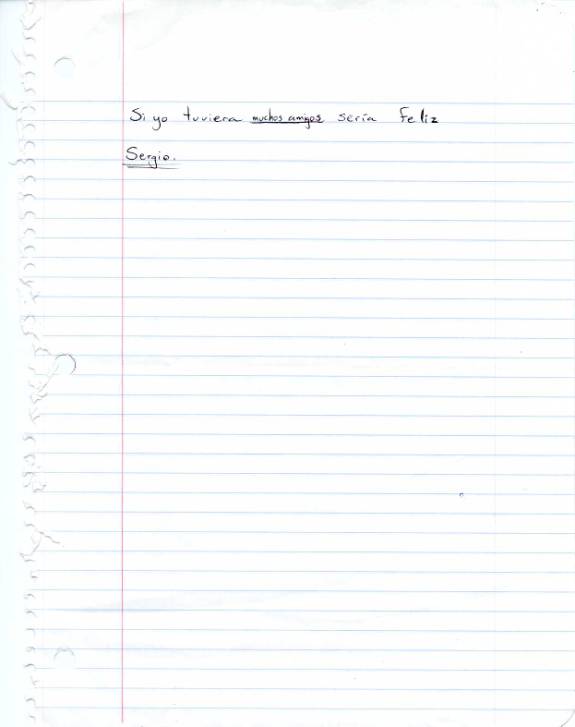 Si yo tuviera muchos amigos sería Feliz
Sergio.